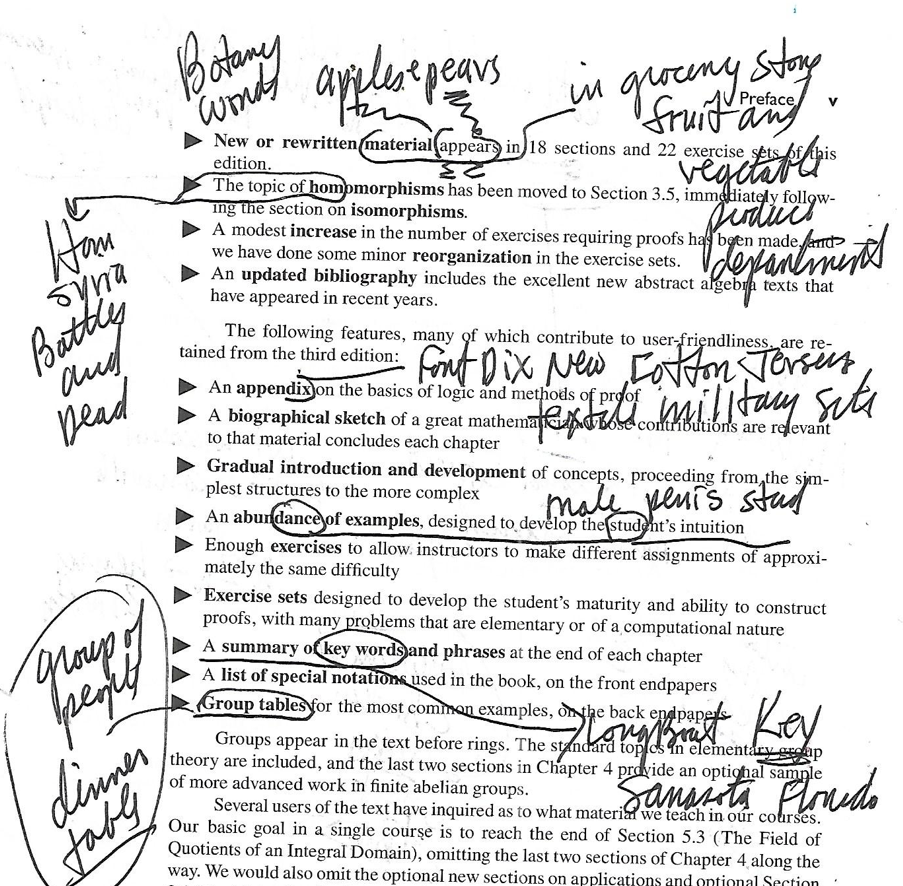 Botany
words
apples + pears
in grocery store
fruit and
vegetable
product
department
Preface v
▶ New or rewritten material appears in 18 sections and 22 exercise sets of this
edition.
▶ The topic of homomorphisms has been moved to Section 3.5, immediately follow-
ing the section on isomorphisms.
▶ A modest increase in the number of exercises requiring proofs has been made, and
we have done some minor reorganization in the exercise sets.
▶ An updated bibliography includes the excellent new abstract algebra texts that
have appeared in recent years.
Hom
Syria
Battles
and
Dead
The following features, many of which contribute to user-friendliness, are re-
tained from the third edition:
Font Dix New Cotton Jersey
textile military site
▶ An appendix on the basics of logic and methods of proof
▶ A biographical sketch of a great mathematician whose contributions are relevant
to that material concludes each chapter
▶ Gradual introduction and development of concepts, proceeding from the sim-
plest structures to the more complex
male penis stud
▶ An abundance of examples, designed to develop the student's intuition
▶ Enough exercises to allow instructors to make different assignments of approxi-
mately the same difficulty
▶ Exercise sets designed to develop the student's maturity and ability to construct
proofs, with many problems that are elementary or of a computational nature
▶ A summary of key words and phrases at the end of each chapter
▶ A list of special notations used in the book, on the front endpapers
▶ Group tables for the most common examples, on the back endpapers
group of
people
dinner
tables
Longboat Key
Sarasota Florida
Groups appear in the text before rings. The standard topics in elementary group
theory are included, and the last two sections in Chapter 4 provide an optional sample
of more advanced work in finite abelian groups.
Several users of the text have inquired as to what material we teach in our courses.
Our basic goal in a single course is to reach the end of Section 5.3 (The Field of
Quotients of an Integral Domain), omitting the last two sections of Chapter 4 along the
way. We would also omit the optional new sections on applications and optional Section